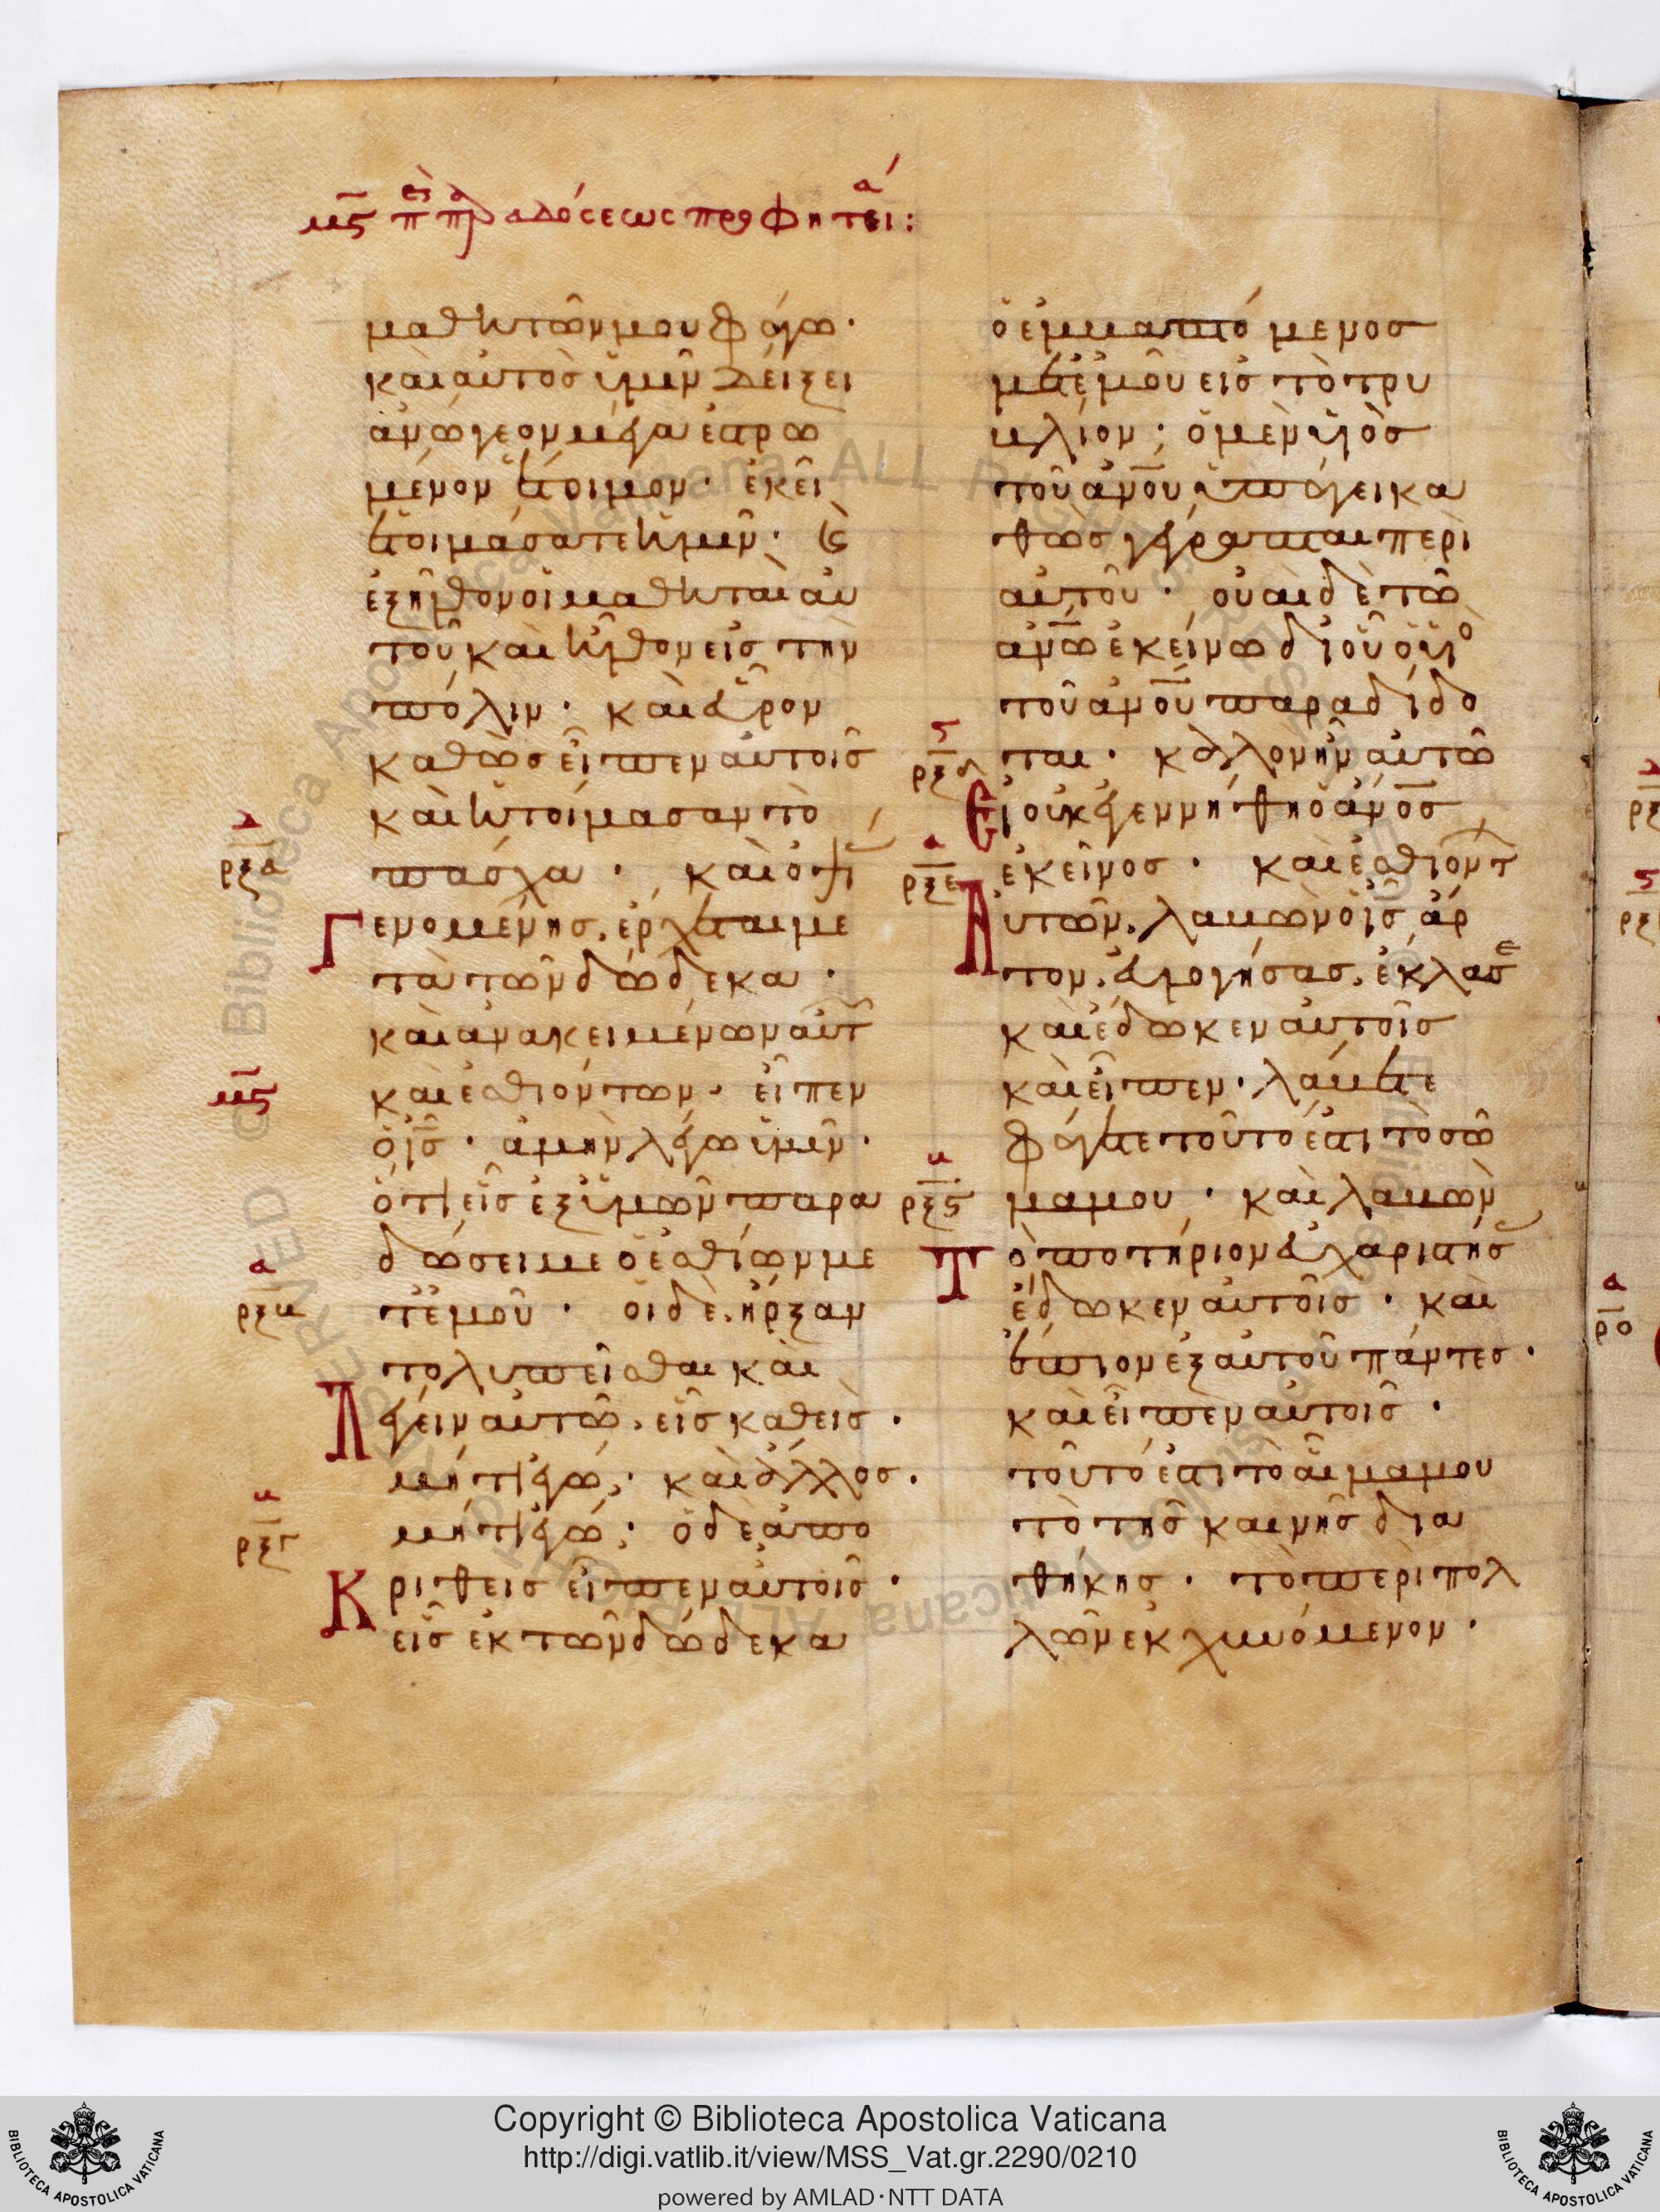 μϛ περὶ παραδόσεως προφητεία:
μαθητῶν μου φάγω·
καὶ αὐτὸς ὑμῖν δείξει
ἀνώγεον μέγα ἐστρω
μένον ἕτοιμον· ἐκεῖ
ἑτοιμάσατε ἡμῖν· καὶ
ἐξῆλθον οἱ μαθηταὶ αὐ
τοῦ καὶ ἦλθον εἰς τὴν
πόλιν· καὶ εὗρον
καθὼς εἶπεν αὐτοῖς
καὶ ἡτοίμασαν τὸ
ρξα
πάσχα· καὶ ὀψί
Γενομένης, ἔρχεται με
τὰ τῶν δώδεκα·
καὶ ἀνακειμένων αὐτ
μϛ
καὶ ἐσθιόντων· εἶπεν
ὁ ι̅ς̅· ἀμὴν λέγω ὑμῖν·
ὅτι εἷς ἐξ ὑμῶν παρα
δώσει με ὁ ἐσθίων με
ρξβ
τ' ἐμοῦ· οἱ δὲ, ἤρξαν
το λυπεῖσθαι καὶ
Λέγειν αὐτῶ, εἷς καθεῖς·
μήτι ἐγώ; καὶ ἄλλος·
ρξγ
μήτι ἐγώ; ὁ δὲ ἀπο
Κριθεὶς εἶπεν αὐτοῖς·
εἷς ἐκ τῶν δώδεκα
ὁ ἐμβαπτόμενος
μετ' ἐμοῦ εἰς τὸ τρυ
βλίον; ὁ μὲν υἱὸς
τοῦ α̅ν̅ο̅υ̅ ὑπάγει κα
θὼς γέγραπται περὶ
αὐτοῦ· οὐαὶ δὲ τῶ
α̅ν̅ω̅ ἐκείνω δι' οὗ ὁ υἱο
τοῦ α̅ν̅ο̅υ̅ παραδίδο
ρξδ
ται· καλὸν ἦν αὐτῶ
Εἰ οὐκ ἐγεννήθη ὁ α̅ν̅ο̅ς̅
ρξε
ἐκεῖνος· καὶ ἐσθιόντ
Αὐτῶν, λαβὼν ὁ ι̅ς̅ ἄρ
τον, εὐλογήσας, ἔκλασε
καὶ ἔδωκεν αὐτοῖς
καὶ εἶπεν· λάβετε
φάγετε τοῦτό ἐστι τὸ σῶ
ρξϛ
μα μου· καὶ λαβὼν
Τὸ ποτήριον εὐχαριστήσ
ἔδωκεν αὐτοῖς· καὶ
ἔπιον ἐξ αὐτοῦ πάντες·
καὶ εἶπεν αὐτοῖς·
τοῦτό ἐστι τὸ αἷμα μου
τὸ τῆς καινῆς δια
θήκης· τὸ περὶ πολ
λῶν ἐκχυνόμενον·
ρο
Copyright © Biblioteca Apostolica Vaticana
http://digi.vatlib.it/view/MSS_Vat.gr.2290/0210
powered by AMLAD·NTT DATA
BIBLIOTECA APOSTOLICA VATICANA
BIBLIOTECA APOSTOLICA VATICANA